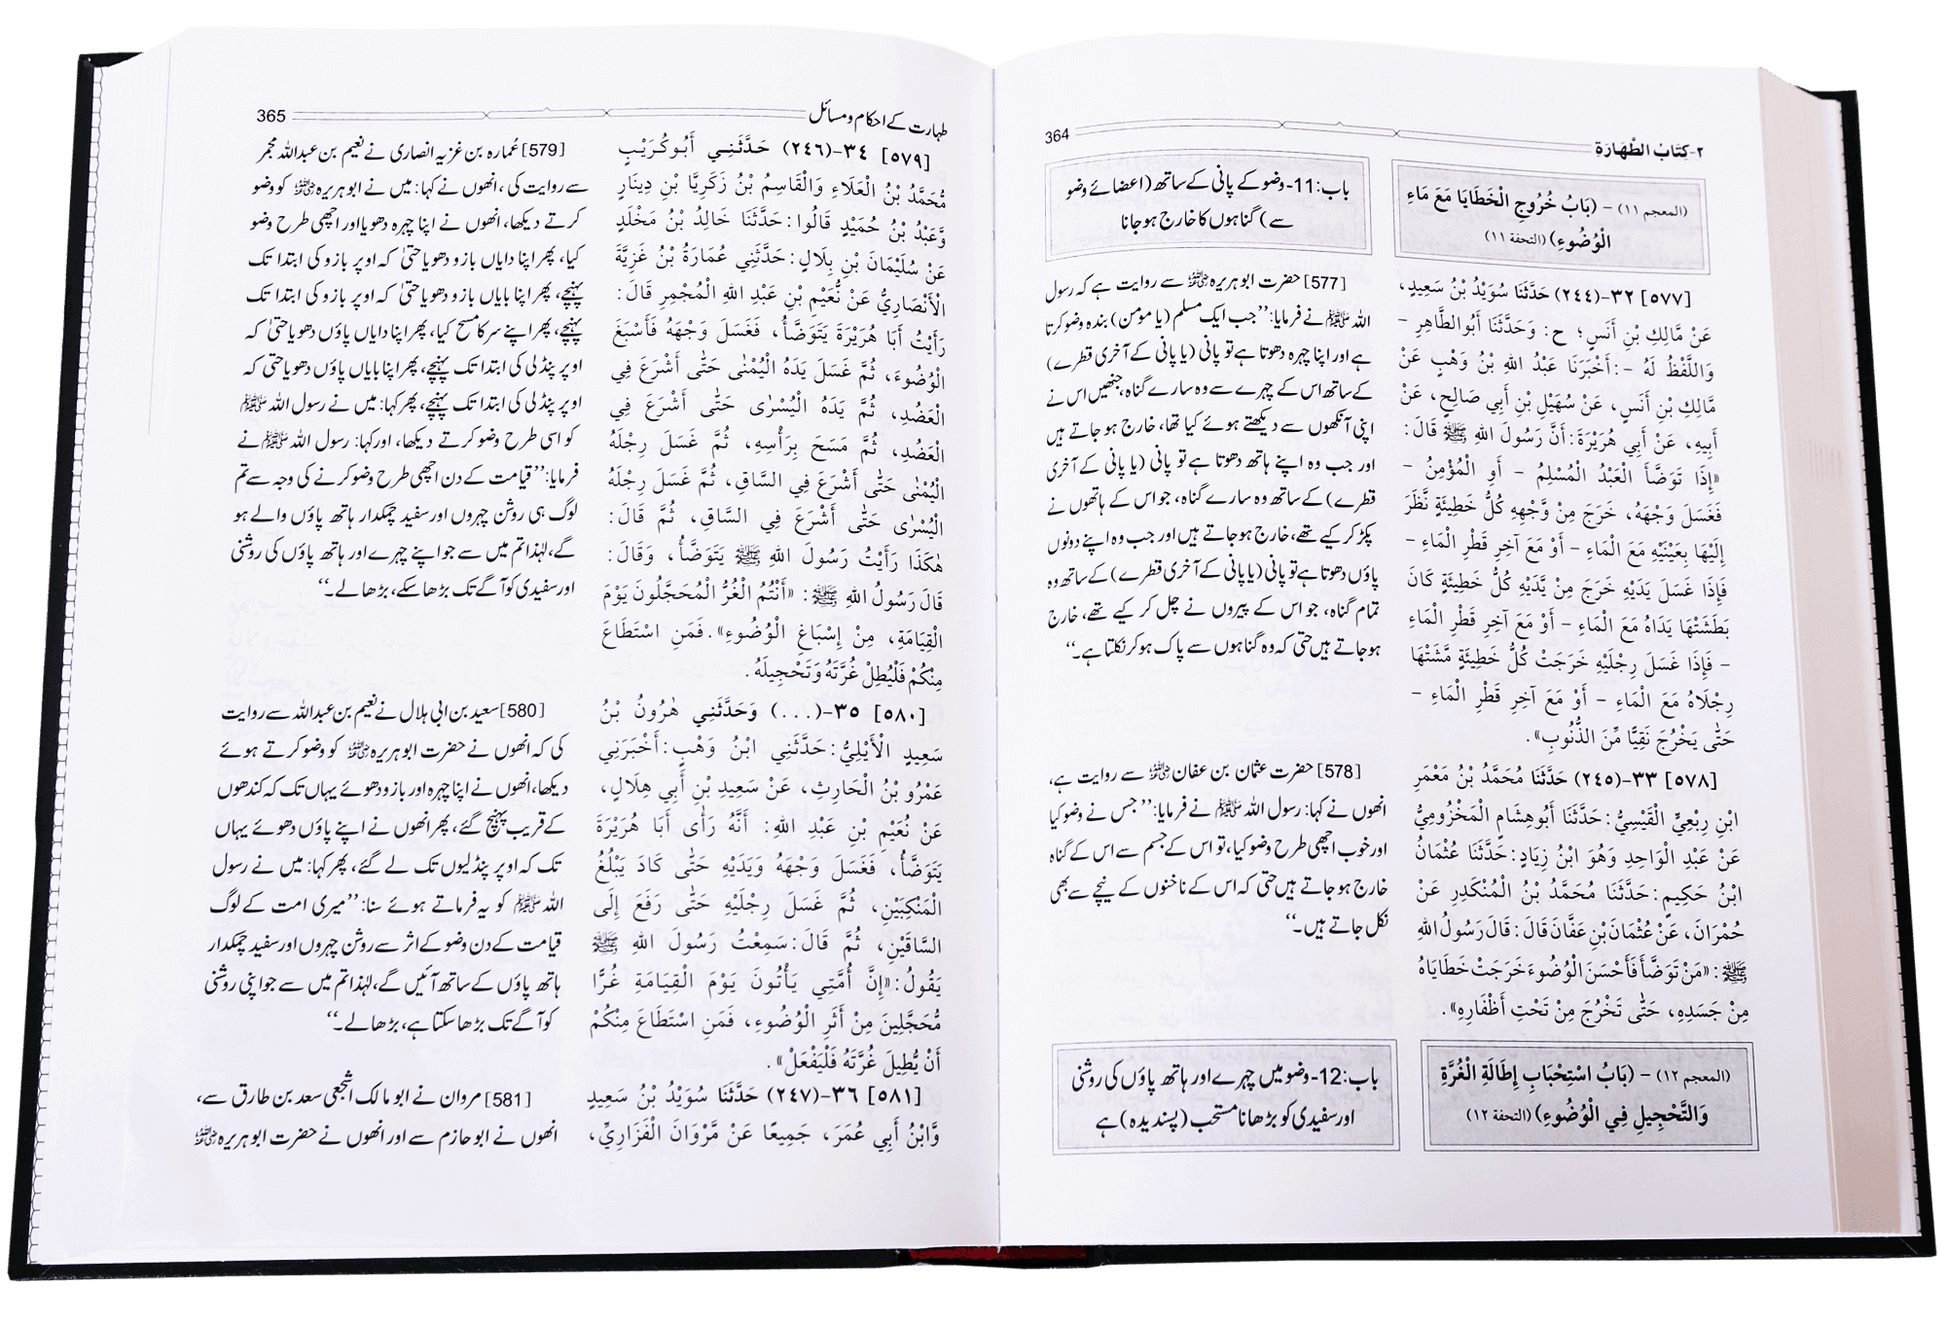 364
٢-كِتَابُ الطَّهَارَةِ
(المعجم ١١) - (بَابُ خُرُوجِ الْخَطَايَا مَعَ مَاءِ
الْوُضُوءِ) (التحفة ١١)
[٥٧٧] ٣٢-(٢٤٤) حَدَّثَنَا سُوَيْدُ بْنُ سَعِيدٍ،
عَنْ مَالِكِ بْنِ أَنَسٍ؛ ح: وَحَدَّثَنَا أَبُو الطَّاهِرِ -
وَاللَّفْظُ لَهُ -: أَخْبَرَنَا عَبْدُ اللهِ بْنُ وَهْبٍ عَنْ
مَالِكِ بْنِ أَنَسٍ، عَنْ سُهَيْلِ بْنِ أَبِي صَالِحٍ، عَنْ
أَبِيهِ، عَنْ أَبِي هُرَيْرَةَ: أَنَّ رَسُولَ اللهِ ﷺ قَالَ:
«إِذَا تَوَضَّأَ الْعَبْدُ الْمُسْلِمُ - أَوِ الْمُؤْمِنُ -
فَغَسَلَ وَجْهَهُ، خَرَجَ مِنْ وَّجْهِهِ كُلُّ خَطِيئَةٍ نَّظَرَ
إِلَيْهَا بِعَيْنَيْهِ مَعَ الْمَاءِ - أَوْ مَعَ آخِرِ قَطْرِ الْمَاءِ -
فَإِذَا غَسَلَ يَدَيْهِ خَرَجَ مِنْ يَّدَيْهِ كُلُّ خَطِيئَةٍ كَانَ
بَطَشَتْهَا يَدَاهُ مَعَ الْمَاءِ - أَوْ مَعَ آخِرِ قَطْرِ الْمَاءِ
- فَإِذَا غَسَلَ رِجْلَيْهِ خَرَجَتْ كُلُّ خَطِيئَةٍ مَّشَتْهَا
رِجْلَاهُ مَعَ الْمَاءِ - أَوْ مَعَ آخِرِ قَطْرِ الْمَاءِ -
حَتّٰى يَخْرُجَ نَقِيًّا مِّنَ الذُّنُوبِ».
[٥٧٨] ٣٣-(٢٤٥) حَدَّثَنَا مُحَمَّدُ بْنُ مَعْمَرِ
ابْنِ رِبْعِيٍّ الْقَيْسِيُّ: حَدَّثَنَا أَبُو هِشَامٍ الْمَخْزُومِيُّ
عَنْ عَبْدِ الْوَاحِدِ وَهُوَ ابْنُ زِيَادٍ: حَدَّثَنَا عُثْمَانُ
ابْنُ حَكِيمٍ: حَدَّثَنَا مُحَمَّدُ بْنُ الْمُنْكَدِرِ عَنْ
حُمْرَانَ، عَنْ عُثْمَانَ بْنِ عَفَّانَ قَالَ: قَالَ رَسُولُ اللهِ
ﷺ: «مَنْ تَوَضَّأَ فَأَحْسَنَ الْوُضُوءَ خَرَجَتْ خَطَايَاهُ
مِنْ جَسَدِهِ، حَتّٰى تَخْرُجَ مِنْ تَحْتِ أَظْفَارِهِ».
(المعجم ١٢) - (بَابُ اسْتِحْبَابِ إِطَالَةِ الْغُرَّةِ
وَالتَّحْجِيلِ فِي الْوُضُوءِ) (التحفة ١٢)
باب:11-وضو کے پانی کے ساتھ (اعضائے وضو
سے) گناہوں کا خارج ہو جانا
[577] حضرت ابوہریرہ ؓ سے روایت ہے کہ رسول
اللہ ﷺ نے فرمایا: ’’جب ایک مسلم (یا مومن) بندہ وضو کرتا
ہے اور اپنا چہرہ دھوتا ہے تو پانی (یا پانی کے آخری قطرے)
کے ساتھ اس کے چہرے سے وہ سارے گناہ، جنھیں اس نے
اپنی آنکھوں سے دیکھتے ہوئے کیا تھا، خارج ہو جاتے ہیں
اور جب وہ اپنے ہاتھ دھوتا ہے تو پانی (یا پانی کے آخری
قطرے) کے ساتھ وہ سارے گناہ، جو اس کے ہاتھوں نے
پکڑ کر کیے تھے، خارج ہو جاتے ہیں اور جب وہ اپنے دونوں
پاؤں دھوتا ہے تو پانی (یا پانی کے آخری قطرے) کے ساتھ وہ
تمام گناہ، جو اس کے پیروں نے چل کر کیے تھے، خارج
ہو جاتے ہیں حتی کہ وہ گناہوں سے پاک ہو کر نکلتا ہے۔‘‘
[578] حضرت عثمان بن عفان ؓ سے روایت ہے،
انھوں نے کہا: رسول اللہ ﷺ نے فرمایا: ’’جس نے وضو کیا
اور خوب اچھی طرح وضو کیا، تو اس کے جسم سے اس کے گناہ
خارج ہو جاتے ہیں حتی کہ اس کے ناخنوں کے نیچے سے بھی
نکل جاتے ہیں۔‘‘
باب:12-وضو میں چہرے اور ہاتھ پاؤں کی روشنی
اور سفیدی کو بڑھانا مستحب (پسندیدہ) ہے
طہارت کے احکام و مسائل
365
[٥٧٩] ٣٤-(٢٤٦) حَدَّثَنِي أَبُو كُرَيْبٍ
مُّحَمَّدُ بْنُ الْعَلَاءِ وَالْقَاسِمُ بْنُ زَكَرِيَّا بْنِ دِينَارٍ
وَّعَبْدُ بْنُ حُمَيْدٍ قَالُوا: حَدَّثَنَا خَالِدُ بْنُ مَخْلَدٍ
عَنْ سُلَيْمَانَ بْنِ بِلَالٍ: حَدَّثَنِي عُمَارَةُ بْنُ غَزِيَّةَ
الْأَنْصَارِيُّ عَنْ نُّعَيْمِ بْنِ عَبْدِ اللهِ الْمُجْمِرِ قَالَ:
رَأَيْتُ أَبَا هُرَيْرَةَ يَتَوَضَّأُ، فَغَسَلَ وَجْهَهُ فَأَسْبَغَ
الْوُضُوءَ، ثُمَّ غَسَلَ يَدَهُ الْيُمْنٰى حَتّٰى أَشْرَعَ فِي
الْعَضُدِ، ثُمَّ يَدَهُ الْيُسْرٰى حَتّٰى أَشْرَعَ فِي
الْعَضُدِ، ثُمَّ مَسَحَ بِرَأْسِهِ، ثُمَّ غَسَلَ رِجْلَهُ
الْيُمْنٰى حَتّٰى أَشْرَعَ فِي السَّاقِ، ثُمَّ غَسَلَ رِجْلَهُ
الْيُسْرٰى حَتّٰى أَشْرَعَ فِي السَّاقِ، ثُمَّ قَالَ:
هٰكَذَا رَأَيْتُ رَسُولَ اللهِ ﷺ يَتَوَضَّأُ، وَقَالَ:
قَالَ رَسُولُ اللهِ ﷺ: «أَنْتُمُ الْغُرُّ الْمُحَجَّلُونَ يَوْمَ
الْقِيَامَةِ، مِنْ إِسْبَاغِ الْوُضُوءِ». فَمَنِ اسْتَطَاعَ
مِنْكُمْ فَلْيُطِلْ غُرَّتَهُ وَتَحْجِيلَهُ.
[٥٨٠] ٣٥-(...) وَحَدَّثَنِي هٰرُونُ بْنُ
سَعِيدٍ الْأَيْلِيُّ: حَدَّثَنِي ابْنُ وَهْبٍ: أَخْبَرَنِي
عَمْرُو بْنُ الْحَارِثِ، عَنْ سَعِيدِ بْنِ أَبِي هِلَالٍ،
عَنْ نُعَيْمِ بْنِ عَبْدِ اللهِ: أَنَّهُ رَأٰى أَبَا هُرَيْرَةَ
يَتَوَضَّأُ، فَغَسَلَ وَجْهَهُ وَيَدَيْهِ حَتّٰى كَادَ يَبْلُغُ
الْمَنْكِبَيْنِ، ثُمَّ غَسَلَ رِجْلَيْهِ حَتّٰى رَفَعَ إِلَى
السَّاقَيْنِ، ثُمَّ قَالَ: سَمِعْتُ رَسُولَ اللهِ ﷺ
يَقُولُ: «إِنَّ أُمَّتِي يَأْتُونَ يَوْمَ الْقِيَامَةِ غُرًّا
مُّحَجَّلِينَ مِنْ أَثَرِ الْوُضُوءِ، فَمَنِ اسْتَطَاعَ مِنْكُمْ
أَنْ يُّطِيلَ غُرَّتَهُ فَلْيَفْعَلْ».
[٥٨١] ٣٦-(٢٤٧) حَدَّثَنَا سُوَيْدُ بْنُ سَعِيدٍ
وَّابْنُ أَبِي عُمَرَ، جَمِيعًا عَنْ مَّرْوَانَ الْفَزَارِيِّ،
[579] عمارہ بن غزیہ انصاری نے نعیم بن عبداللہ مجمر
سے روایت کی، انھوں نے کہا: میں نے ابوہریرہ ؓ کو وضو
کرتے دیکھا، انھوں نے اپنا چہرہ دھویا اور اچھی طرح وضو
کیا، پھر اپنا دایاں بازو دھویا حتیٰ کہ اوپر بازو کی ابتدا تک
پہنچے، پھر اپنا بایاں بازو دھویا حتیٰ کہ اوپر بازو کی ابتدا تک
پہنچے، پھر اپنے سر کا مسح کیا، پھر اپنا دایاں پاؤں دھویا حتیٰ کہ
اوپر پنڈلی کی ابتدا تک پہنچے، پھر اپنا بایاں پاؤں دھویا حتی کہ
اوپر پنڈلی کی ابتدا تک پہنچے، پھر کہا: میں نے رسول اللہ ﷺ
کو اسی طرح وضو کرتے دیکھا، اور کہا: رسول اللہ ﷺ نے
فرمایا: ’’قیامت کے دن اچھی طرح وضو کرنے کی وجہ سے تم
لوگ ہی روشن چہروں اور سفید چمکدار ہاتھ پاؤں والے ہو
گے، لہٰذا تم میں سے جو اپنے چہرے اور ہاتھ پاؤں کی روشنی
اور سفیدی کو آگے تک بڑھا سکے، بڑھا لے۔‘‘
[580] سعید بن ابی ہلال نے نعیم بن عبداللہ سے روایت
کی کہ انھوں نے حضرت ابوہریرہ ؓ کو وضو کرتے ہوئے
دیکھا، انھوں نے اپنا چہرہ اور بازو دھوئے یہاں تک کہ کندھوں
کے قریب پہنچ گئے، پھر انھوں نے اپنے پاؤں دھوئے یہاں
تک کہ اوپر پنڈلیوں تک لے گئے، پھر کہا: میں نے رسول
اللہ ﷺ کو یہ فرماتے ہوئے سنا: ’’میری امت کے لوگ
قیامت کے دن وضو کے اثر سے روشن چہروں اور سفید چمکدار
ہاتھ پاؤں کے ساتھ آئیں گے، لہٰذا تم میں سے جو اپنی روشنی
کو آگے تک بڑھا سکتا ہے، بڑھا لے۔‘‘
[581] مروان نے ابو مالک اشجعی سعد بن طارق سے،
انھوں نے ابو حازم سے اور انھوں نے حضرت ابوہریرہ ؓ